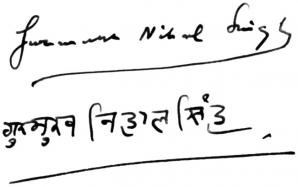 Gurmukh Nihal Singh
ਗੁਰਮੁਖ ਨਿਹਾਲ ਸਿੰਘ